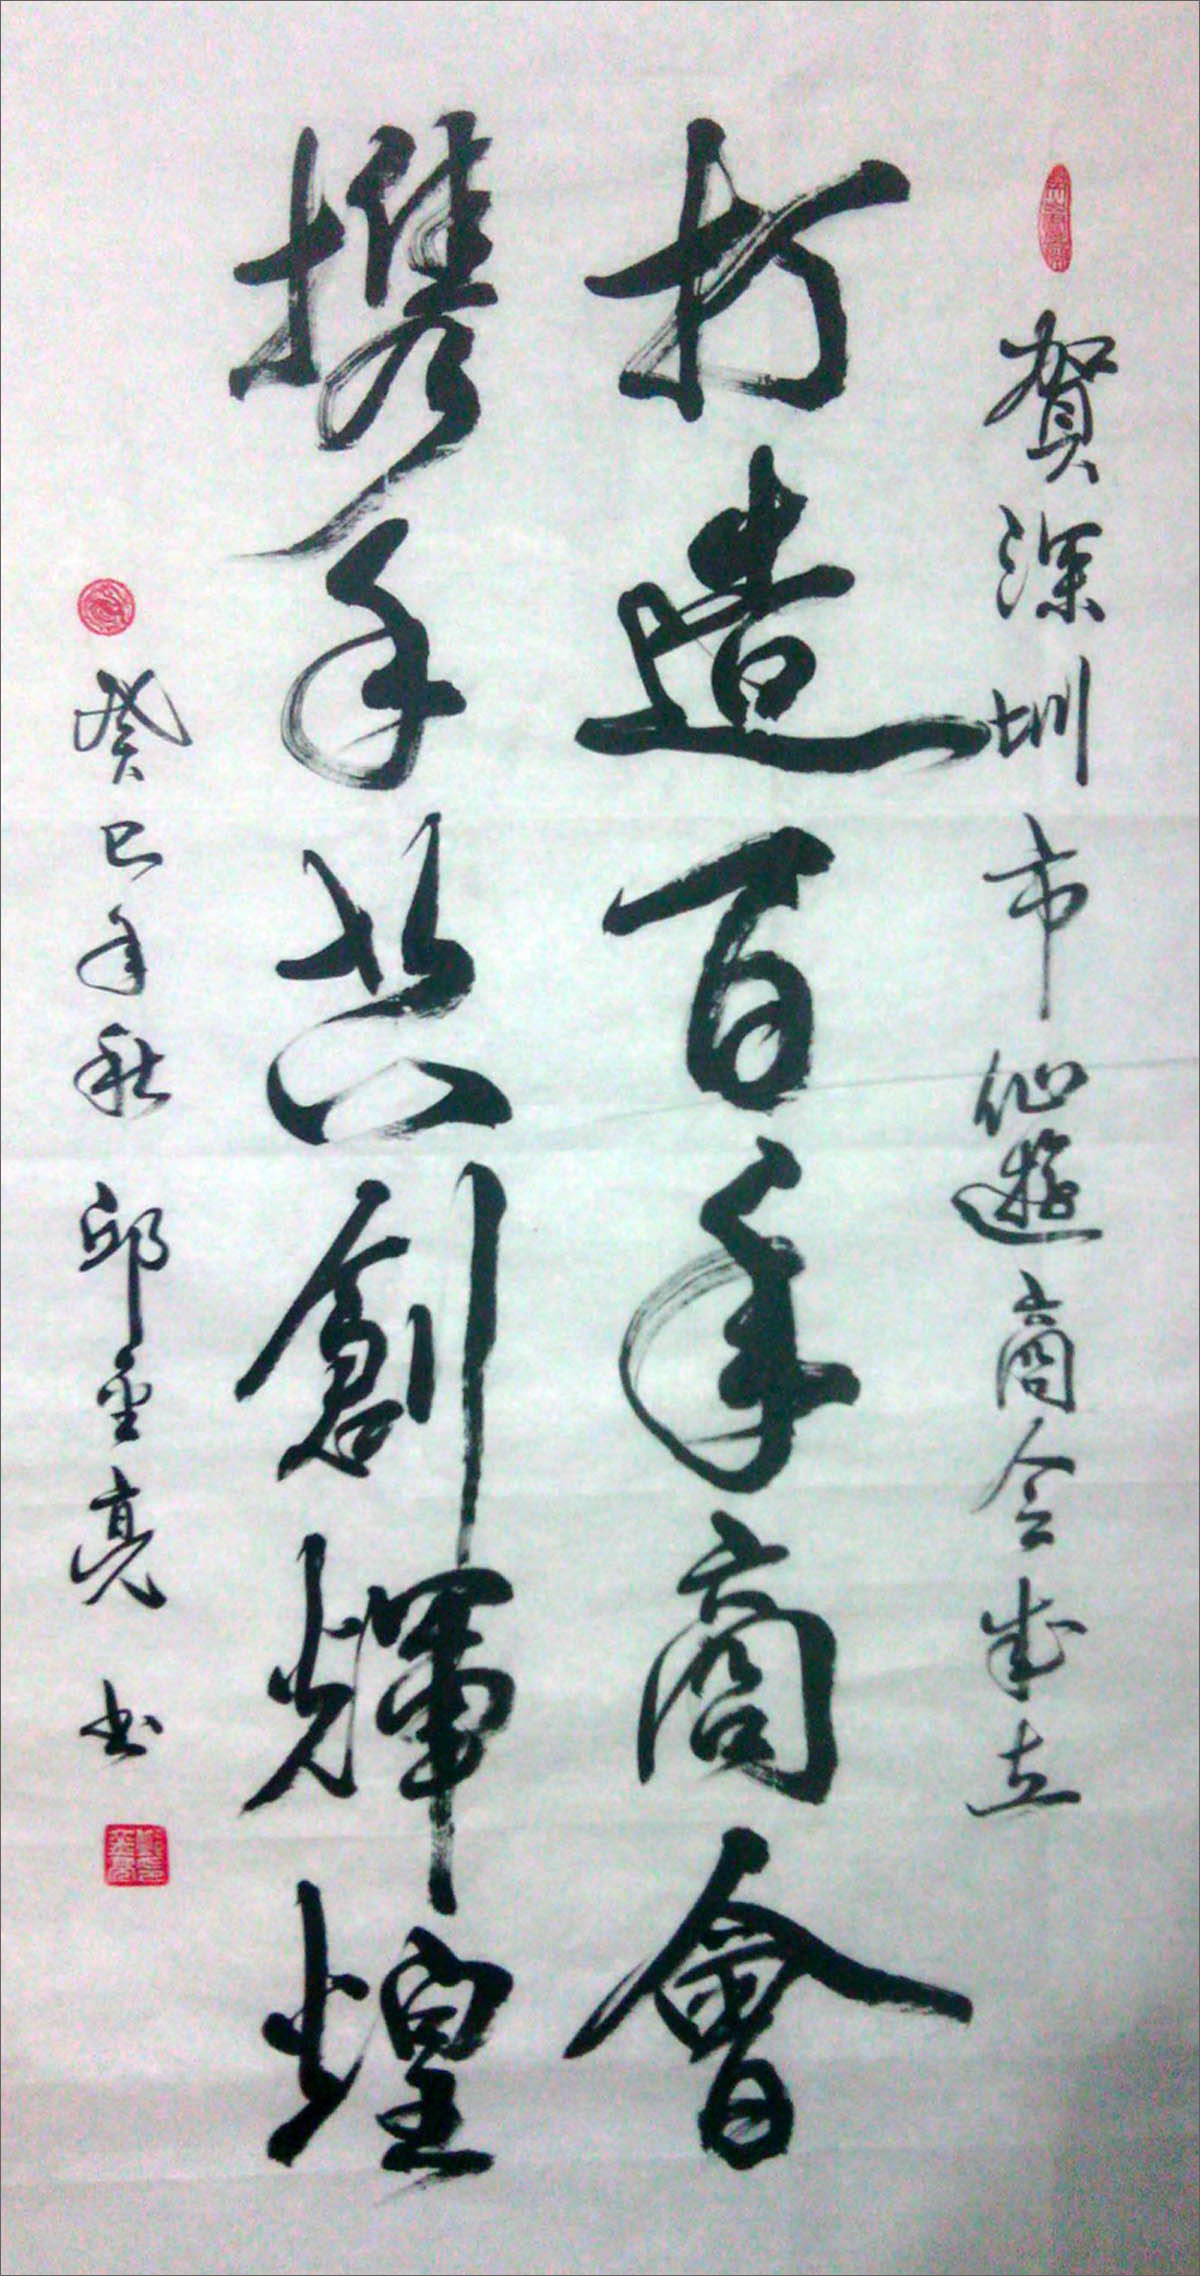 賀深圳市仙遊商会成立
打造百年商會
携手共創輝煌
癸巳年秋 邱金亮 书